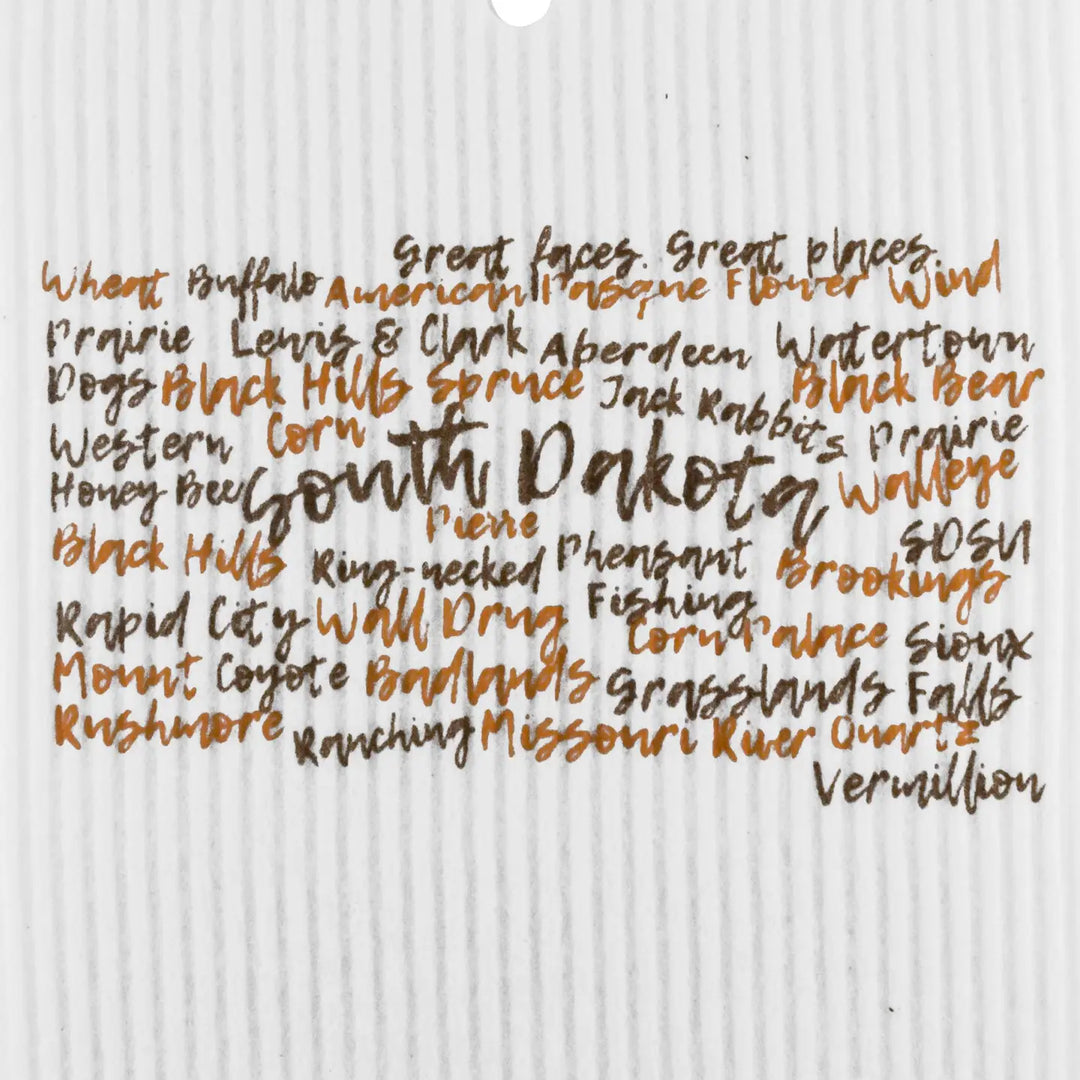 Great faces. Great places.
Wheat Buffalo American Pasque Flower Wind
Prairie Lewis & Clark Aberdeen Watertown
Dogs Black Hills Spruce Jack Rabbits Black Bear
Western Corn Prairie
Honey Bee South Dakota Walleye
Pierre
Black Hills Ring-necked Pheasant Brookings SDSU
Rapid City Wall Drug Fishing
Corn Palace Sioux
Mount Coyote Badlands Grasslands Falls
Rushmore Ranching Missouri River Quartz
Vermillion